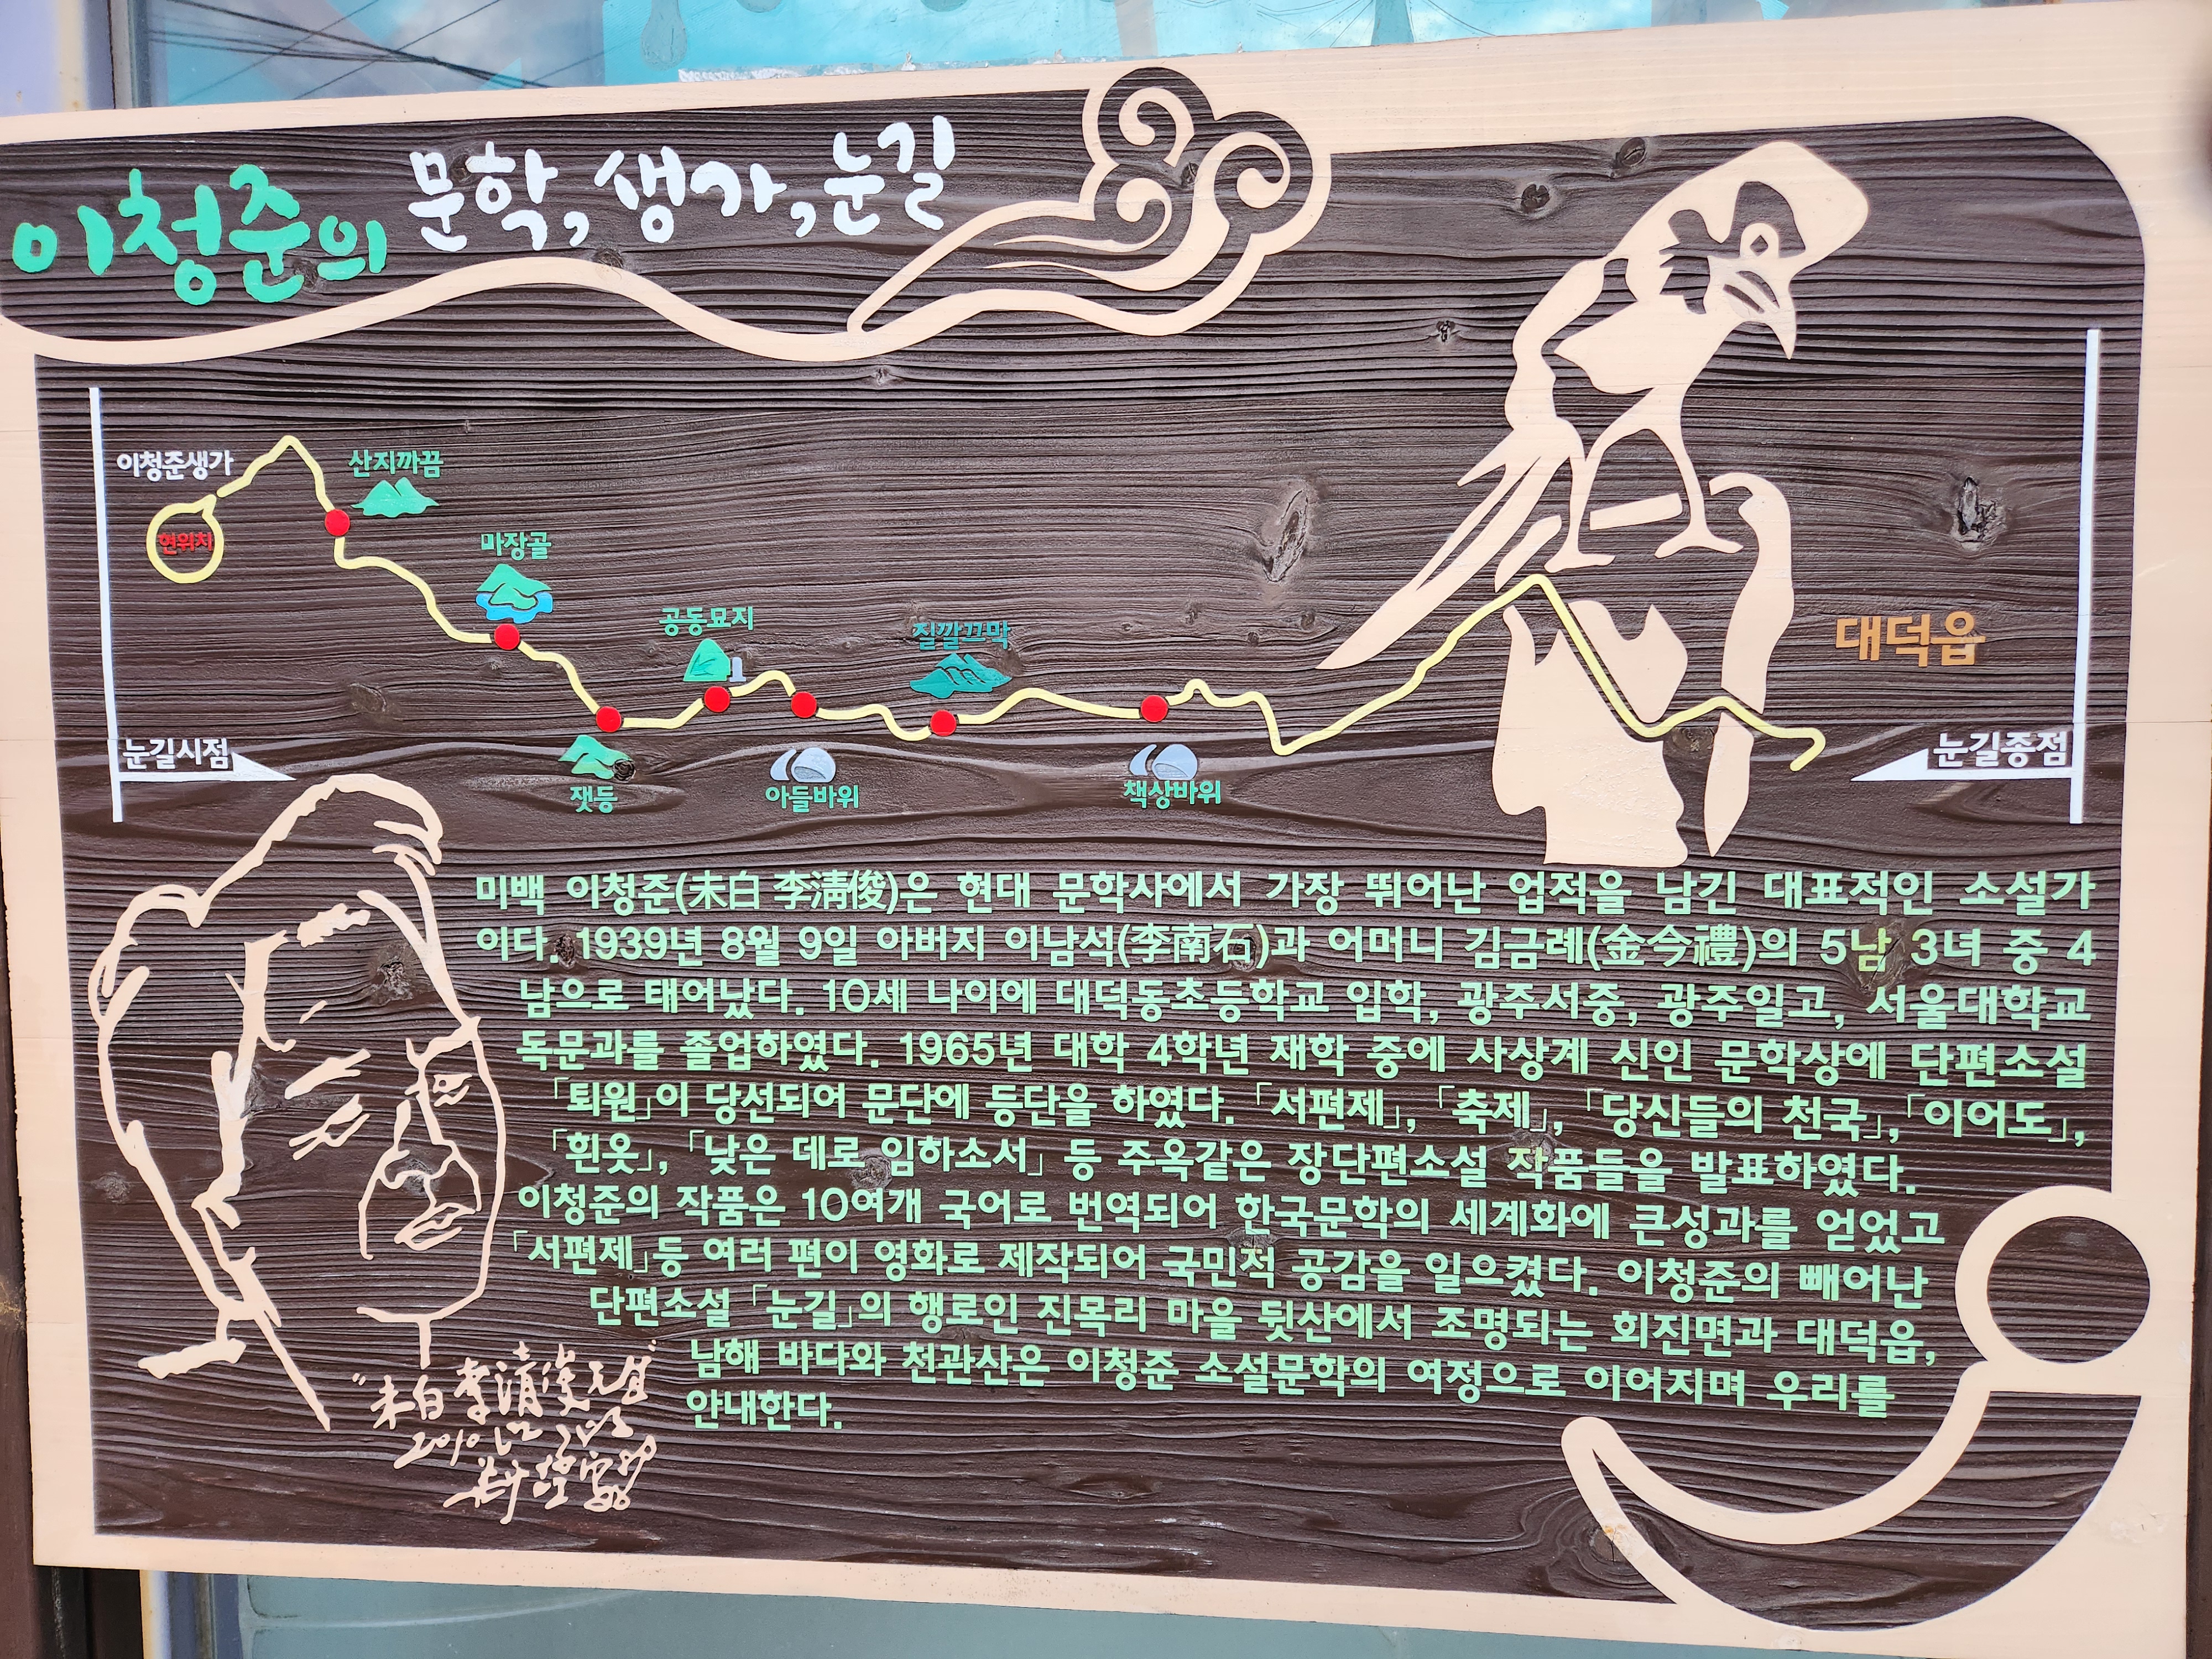 이청준의 문학, 생가, 눈길
이청준생가
현위치
산지까끔
마장골
잿등
공동묘지
아들바위
질깔끄막
책상바위
대덕읍
눈길시점
눈길종점
미백 이청준(未白 李淸俊)은 현대 문학사에서 가장 뛰어난 업적을 남긴 대표적인 소설가
이다. 1939년 8월 9일 아버지 이남석(李南石)과 어머니 김금례(金今禮)의 5남 3녀 중 4
남으로 태어났다. 10세 나이에 대덕동초등학교 입학, 광주서중, 광주일고, 서울대학교
독문과를 졸업하였다. 1965년 대학 4학년 재학 중에 사상계 신인 문학상에 단편소설
「퇴원」이 당선되어 문단에 등단을 하였다. 「서편제」, 「축제」, 「당신들의 천국」, 「이어도」,
「흰옷」, 「낮은 데로 임하소서」 등 주옥같은 장단편소설 작품들을 발표하였다.
이청준의 작품은 10여개 국어로 번역되어 한국문학의 세계화에 큰성과를 얻었고
「서편제」등 여러 편이 영화로 제작되어 국민적 공감을 일으켰다. 이청준의 빼어난
단편소설 「눈길」의 행로인 진목리 마을 뒷산에서 조명되는 회진면과 대덕읍,
남해 바다와 천관산은 이청준 소설문학의 여정으로 이어지며 우리를
안내한다.
"未白 李淸俊
2010